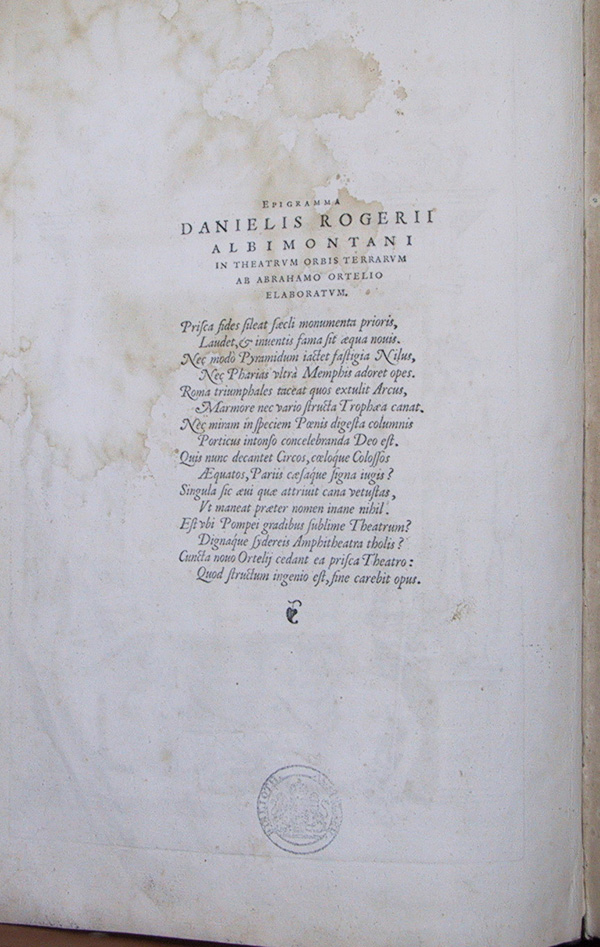 EPIGRAMMA
DANIELIS ROGERII
ALBIMONTANI
IN THEATRVM ORBIS TERRARVM
AB ABRAHAMO ORTELIO
ELABORATVM.
Priſca fides ſileat ſæcli monumenta prioris,
Laudet, & inuentis fama ſit æqua nouis.
Nec modò Pyramidum iactet faſtigia Nilus,
Nec Pharias vltrà Memphis adoret opes.
Roma triumphales taceat quos extulit Arcus,
Marmore nec vario ſtructa Trophæa canat.
Nec miram in ſpeciem Pœnis digeſta columnis
Porticus intonſo concelebranda Deo eſt.
Quis nunc decantet Circos, cœloque Coloſſos
Æquatos, Pariis cæſaque ſigna iugis?
Singula ſic æui quæ attriuit cana vetuſtas,
Vt maneat præter nomen inane nihil.
Eſt vbi Pompei gradibus ſublime Theatrum?
Dignaque ſydereis Amphitheatra tholis?
Cuncta nouo Ortelij cedant ea priſca Theatro:
Quod ſtructum ingenio eſt, fine carebit opus.